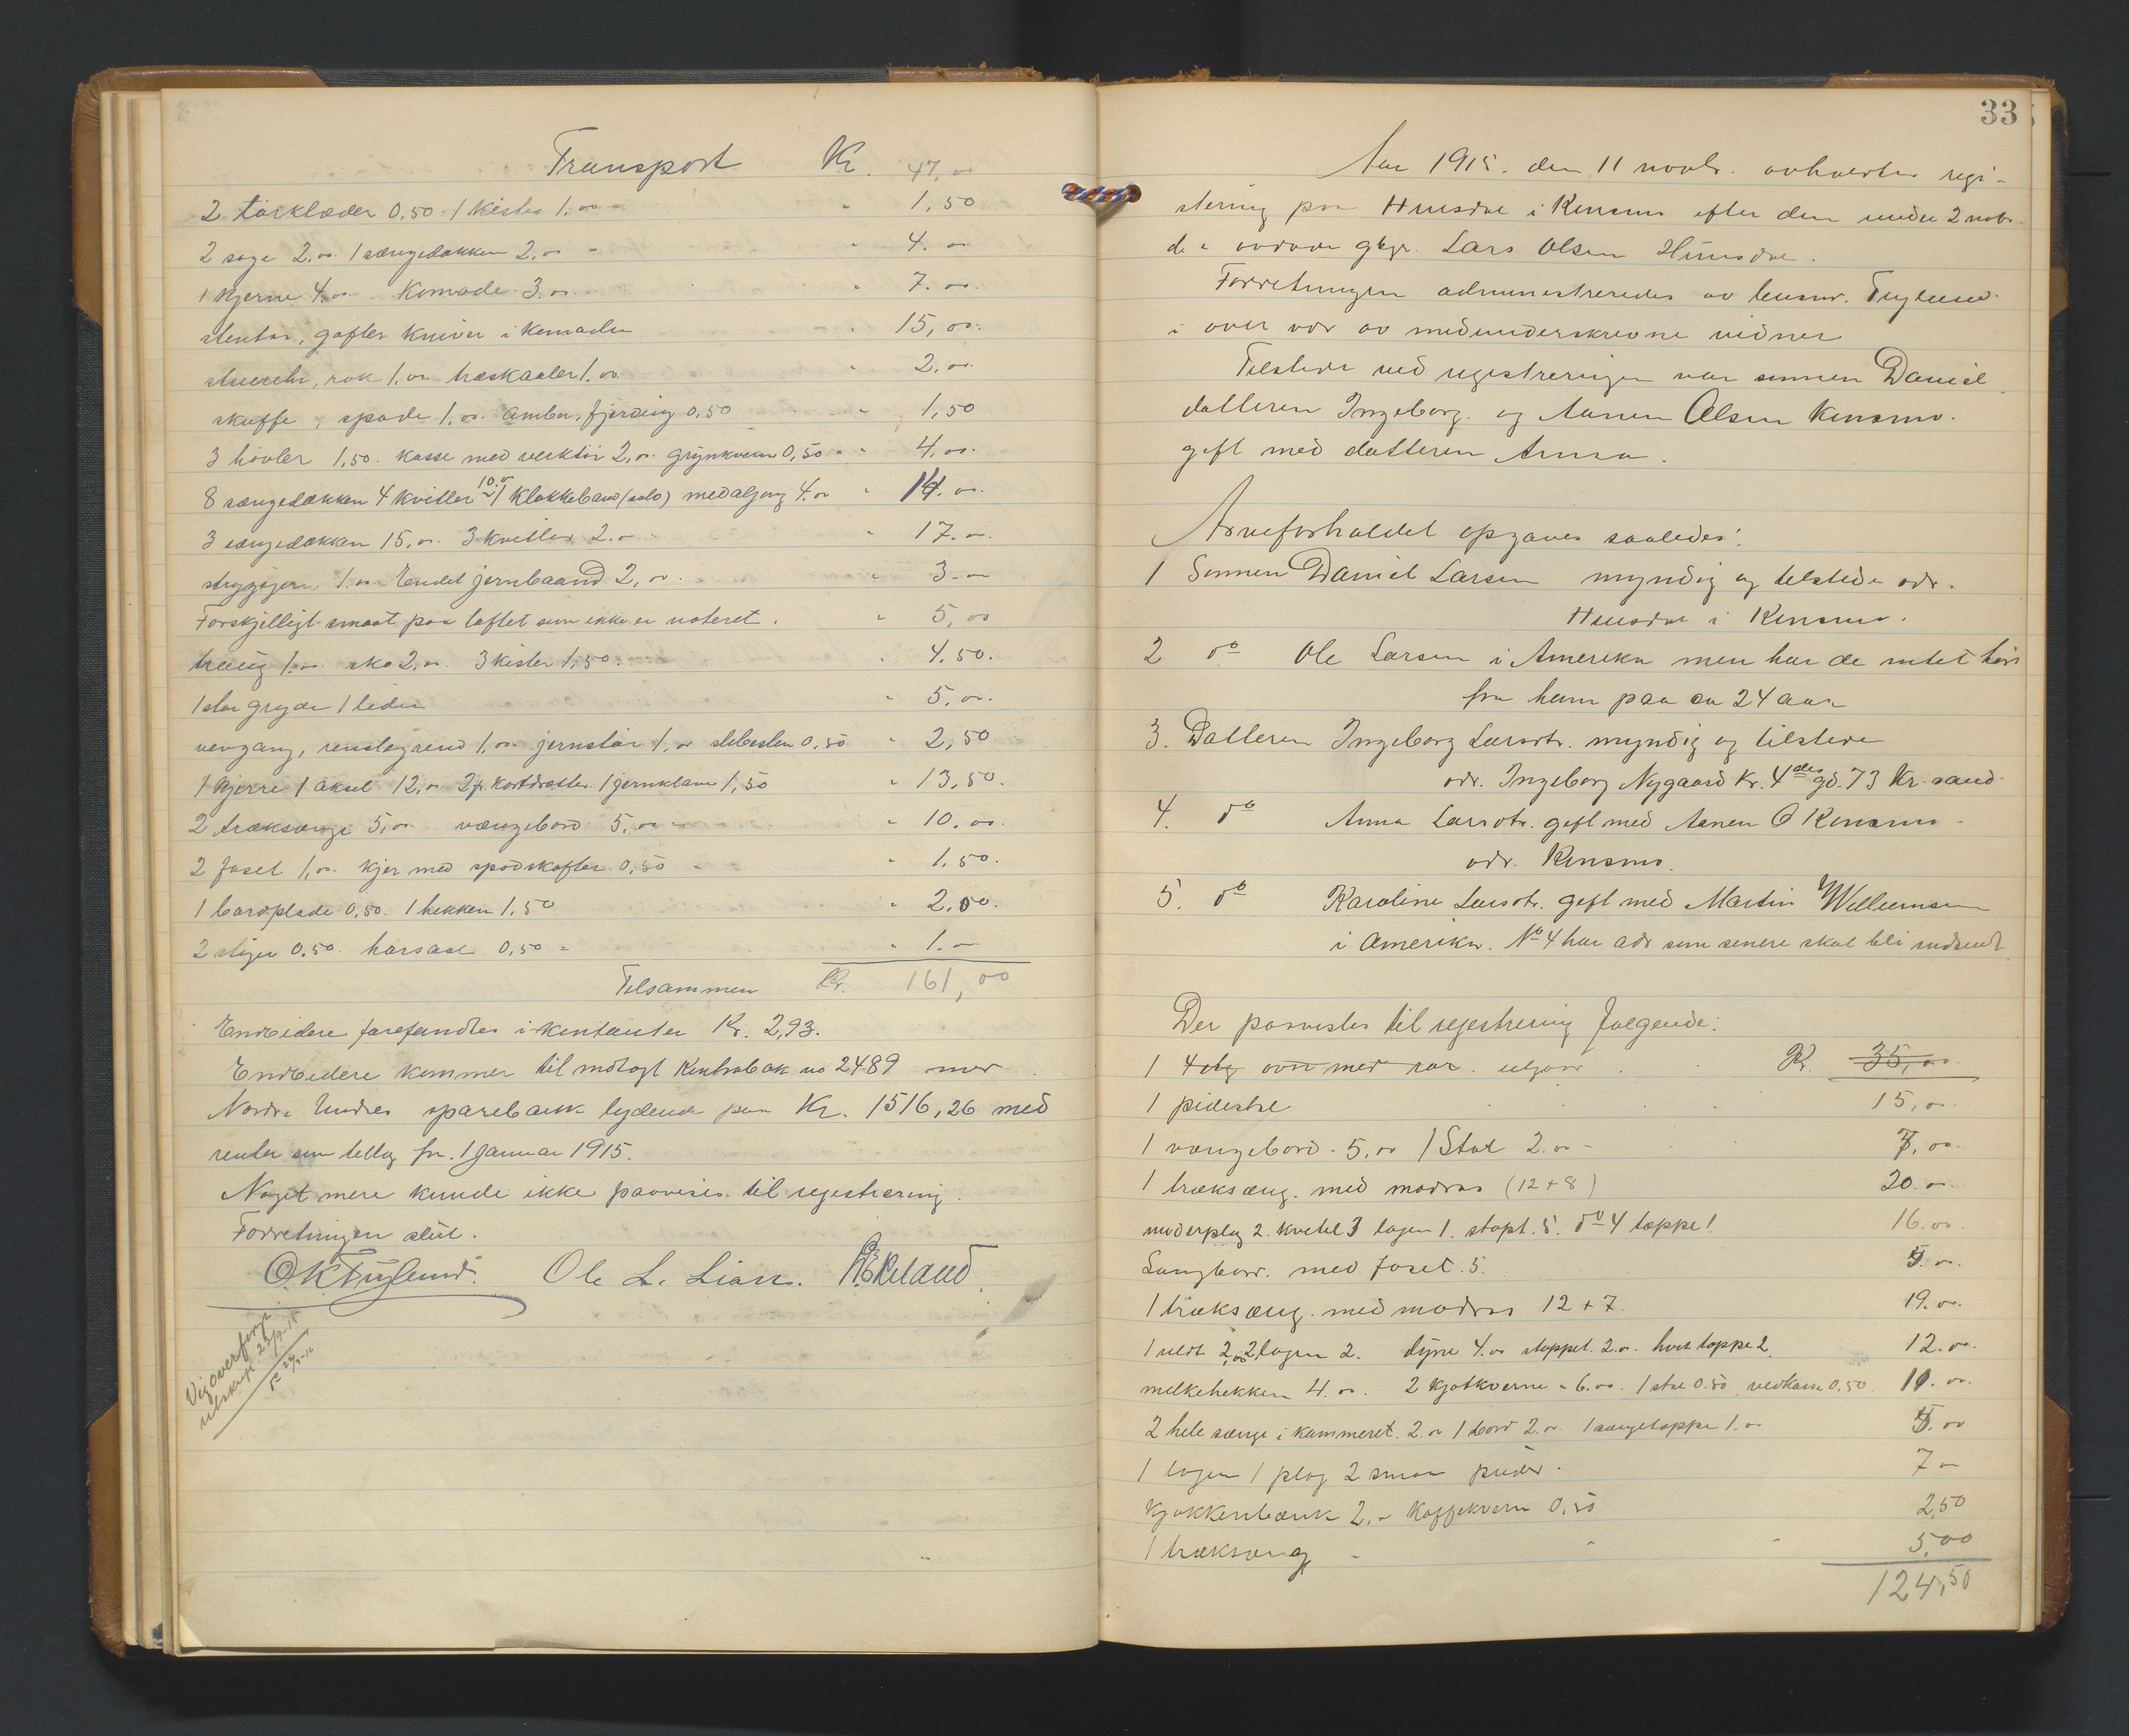 Transport Kr. 47.00
2 törklæder 0,50 1 kiste 1.00 " 1,50
2 sage 2.00. 1 sængedækken 2.00 " 4.00
1 kjerne 4.00 Komode 3.00. " 7.00.
stentöi, gafler kniver i komoden " 15,00.
stueuhr, rok 1.00 træskaaler 1.00 " 2,00.
skuffe, spade 1.00. ambu, fjerding 0,50 " 1,50
3 hövler 1,50. kasse med verktöi 2,00 grynkvern 0,50 " 4,00.
8 sængedækken 4 kvitler 10.00 1 klokkebaand (sölv) medaljong 4.00 " 14.00.
3 sængedækken 15,00. 3 kvitler 2.00 " 17.00.
strygejern 1.00 Endel jernbaand 2,00. " 3.00
Forskjelligt smaat paa loftet som ikke er noteret. " 5,00
1.00 sko 2,00. 3 kister 1,50. " 4.50.
1 stor gryde 1 liden " 5,00.
vevgang, 1.00 jernstör 1.00 slibesten 0,50 " 2,50
1 kjerre 1 aksel 12,00 2 1 jernklave 1,50 " 13,50.
2 træksænge 5,00 vængebord 5,00 " 10.00.
2 foset 1,00. kjer med spodskafter 0,50 " 1.50.
1 bordplade 0,50. 1 hekken 1.50 " 2.00.
2 stiger 0.50. 0,50 " 1.00
Tilsammen Kr. 161,00
Endvidere forefandtes i kontanter Kr. 2,93.
Endvidere kommer til motagt Kontrabok no 2489 med
Nordre Undals sparebank lydende paa Kr. 1516,26 med
renter som tillæg fra 1 Januar 1915.
Noget mere kunde ikke paavises til registrering.
Forretningen slut.
O.K. Fuglund. Ole L. Lian.
33
Aar 1915. den 11 novbr. avholdtes regi-
strering paa Hunsdal i Konsmo efter den under 2 novbr.
d. a. avdøde gbgr. Lars Olsen Hunsdal.
Forretningen administreredes av lensm. Fuglund
i over vær av medunderskrevne vidner
Tilstede ved registreringen var sønnen Daniel
datteren Ingeborg. og Aanen Olsen Konsmo.
gift med datteren Anna.
Arveforholdet opgaves saaledes:
1 Sønnen Daniel Larsen myndig og tilstede adr.
Hunsdal i Konsmo.
2 do Ole Larsen i Amerika men har de intet hört
fra ham paa ca 24 aar
3. Datteren Ingeborg Larsdtr. myndig og tilstede
adr. Ingeborg Nygaard Kr. 4des gd. 73 Kr.sand.
4. do Anna Larsdtr. gift med Aanen O Konsmo
adr. Konsmo.
5. do Karoline Larsdtr. gift med Martin Willumsen
i Amerika. No 4 har adr som senere skal bli indsendt.
Der paavistes til registrering følgende:
1 4 etg ovn med rør. utgaar Kr. 35,00
1 pidestal 15,00
1 vængebord. 5,00 1 Stol 2.00 7,00.
1 træksæng. med madras (12+8) 20.00.
underplag 2. kvitel 3 lagen 1. stopt. 5. do 4 tæppe 1 16.00.
Langbord. med foset. 5. 5.00.
1 træksæng. med madras 12+7. 19.00.
1 2,00 2 lagen 2. dyne 4.00 stoppet. 2.00. hvit tæppe 2. 12.00.
melkehekken 4.00. 2 kjøtkverne " 6.00. 1 stol 0.50. vedkasse 0.50. 11.00.
2 hele sænge i kammeret. 2.00 1 bord 2.00. 1 sængetæppe 1.00 5.00
1 lagen 1 plag 2 smaa puder. 7 00
kjøkkenbænk 2.00 kaffekvern 0,50 2,50
1 træksæng 5.00
124,50